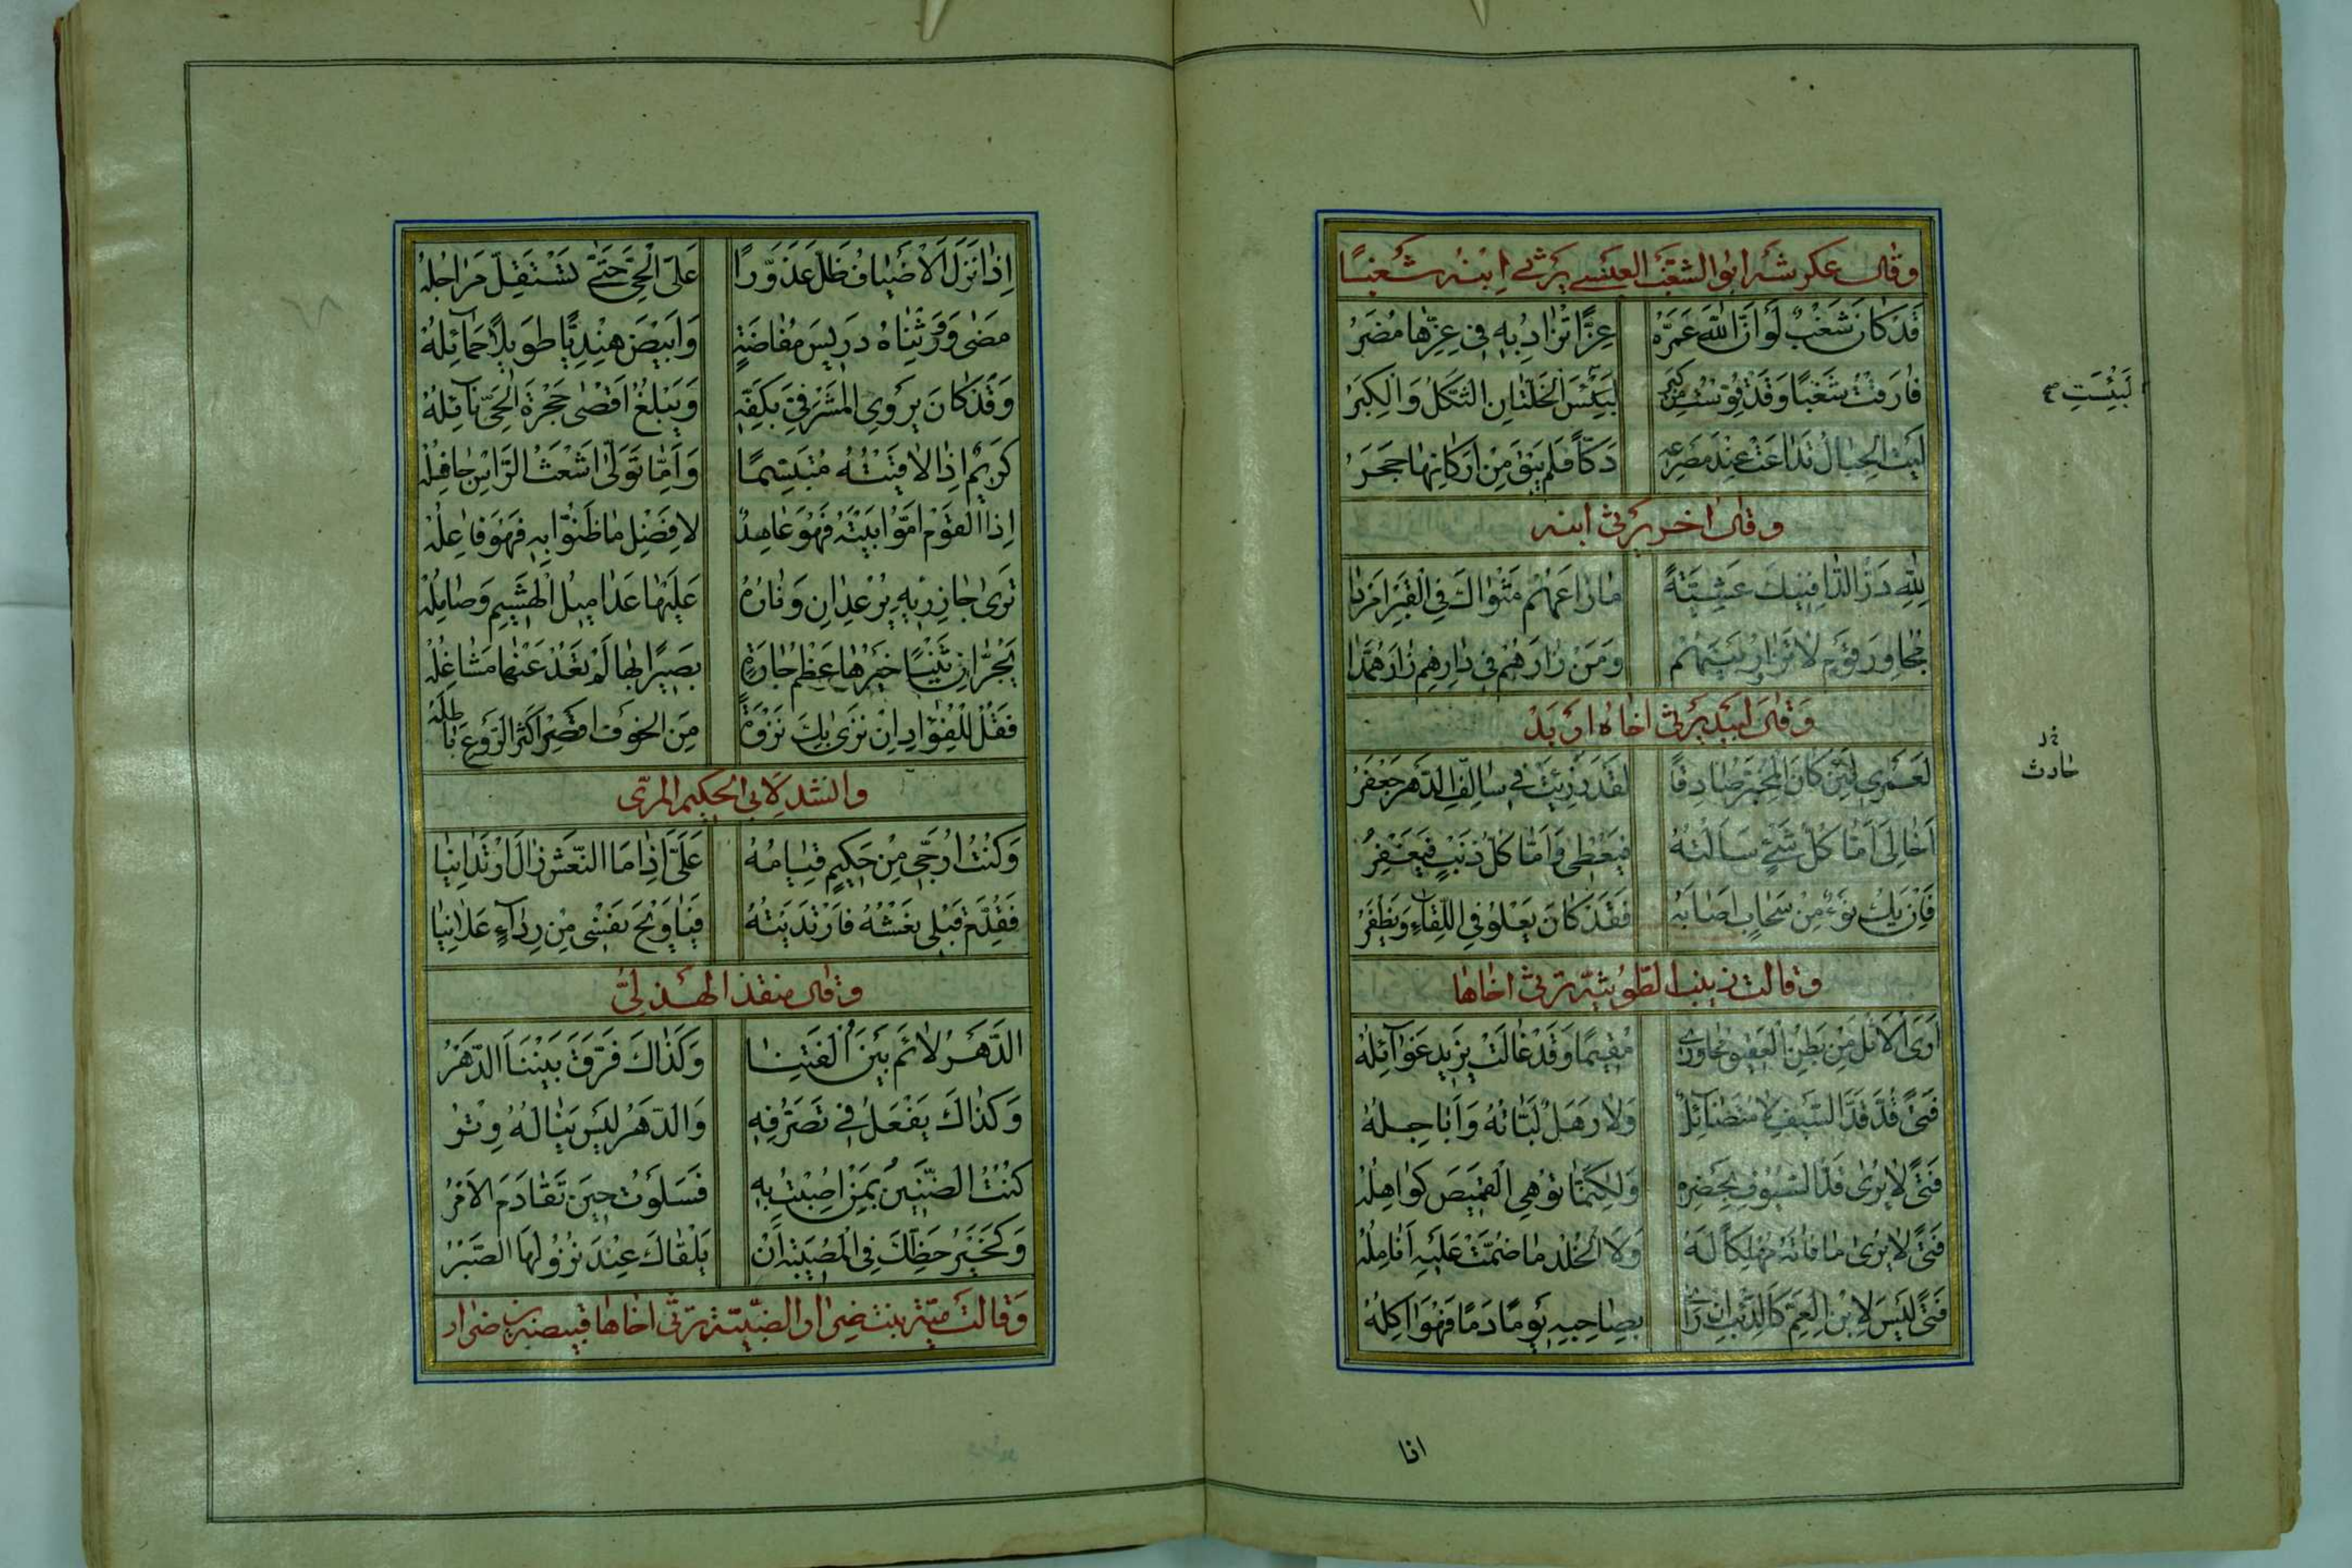 وقال عكرشة ابو الشغب العبسي يرثي ابنه شغبًا
قَدْ كَانَ شَغْبٌ لَوْ اَنَّ اللّٰهَ عَمَّرَهُ عِزًّا تُزَادُ بِهِ فِي عِزِّهَا مُضَرُ
فَارَقْتُ شَغْبًا وَقَدْ قُوِّسْتُ مِنْ كِبَرٍ لَبِئْسَ الْخَلَّتَانِ الثُّكْلُ وَالْكِبَرُ
لَبِئْسَتِ
لَيْتَ الْجِبَالَ تَدَاعَتْ عِنْدَ مَصْرَعِهِ دَكًّا فَلَمْ يَبْقَ مِنْ اَرْكَانِهَا حَجَرُ
وقال اخر يرثي ابنه
لِلّٰهِ دَرُّ الدَّافِنِيكَ عَشِيَّةً مَا رَاعَهُمْ مَثْوَاكَ فِي الْقَبْرِ اَمْرَدَا
مُجَاوِرَ قَوْمٍ لَا تَزَاوُرَ بَيْنَهُمْ وَمَنْ زَارَهُمْ فِي دَارِهِمْ زَارَ هُمَّدَا
وَقَالَ لبيد يرثي اخاه اربد
لَعَمْرِي لَئِنْ كَانَ الْمُخَبِّرُ صَادِقًا لَقَدْ رُزِئَتْ فِي سَالِفِ الدَّهْرِ جَعْفَرُ
حادث
اَخًا لِي اَمَّا كُلُّ شَيْءٍ سَاَلْتُهُ فَيُعْطِي وَاَمَّا كُلُّ ذَنْبٍ فَيَغْفِرُ
فَاِنْ يَكُ نَوْءٌ مِنْ سَحَابٍ اَصَابَهُ فَقَدْ كَانَ يَعْلُو فِي اللِّقَاءِ وَيَظْفَرُ
وقالت زينب الطثرية ترثي اخاها
اَرَى الْاَثْلَ مِنْ بَطْنِ الْعَقِيقِ مُجَاوِرِي مُقِيمًا وَقَدْ غَالَتْ يَزِيدَ غَوَائِلُهُ
فَتًى قُدَّ قَدَّ السَّيْفِ لَا مُتَضَائِلٌ وَلَا رَهَلٌ لَبَّاتُهُ وَاَبَاجِلُهُ
فَتًى لَا يُرَى قَدُّ السُّيُوفِ بِخَصْرِهِ وَلٰكِنَّمَا تُوهِي الْقَمِيصَ كَوَاهِلُهُ
فَتًى لَا يَرَى مَا فَاتَهُ مُهْلِكًا لَهُ وَلَا الْخُلْدَ مَا ضُمَّتْ عَلَيْهِ اَنَامِلُهُ
فَتًى لَيْسَ لِابْنِ الْعَمِّ كَالذِّئْبِ اِنْ رَاَى بِصَاحِبِهِ يَوْمًا دَمًا فَهْوَ اٰكِلُهُ
اذا
اِذَا نَزَلَ الْاَضْيَافُ ظَلَّ عَذَوَّرًا عَلَى الْحَيِّ حَتّٰى تَسْتَقِلَّ مَرَاجِلُهُ
مَضٰى وَوَرِثْنَاهُ دَرِيسَ مُفَاضَةٍ وَاَبْيَضَ هِنْدِيًّا طَوِيلًا حَمَائِلُهُ
وَقَدْ كَانَ يُرْوِي الْمَشْرَفِيَّ بِكَفِّهِ وَيَبْلُغُ اَقْصٰى حَجْرَةِ الْحَيِّ نَائِلُهُ
كَرِيمٌ اِذَا لَاقَيْتَهُ مُتَبَسِّمًا وَاِمَّا تَوَلّٰى اَشْعَثُ الرَّاْسِ جَافِلُهُ
اِذَا الْقَوْمُ اَمُّوا بَيْتَهُ فَهُوَ عَامِدٌ لِاَفْضَلِ مَا ظَنُّوا بِهِ فَهُوَ فَاعِلُهُ
تَرٰى جَازِرَيْهِ يُرْعَدَانِ وَنَارُهُ عَلَيْهَا عَدَامِيلُ الْهَشِيمِ وَصَامِلُهُ
يَجُرَّانِ ثِنْيًا خَيْرُهَا عَظْمُ جَارَةٍ بَصِيرًا بِهَا لَمْ تَعْدُ عَنْهَا مَشَاغِلُهُ
فَقُلْ لِلْفُؤَادِ اِنْ نَزٰى بِكَ نَزْوَةً مِنَ الْخَوْفِ اَقْصِرْ اَكْثَرُ الرَّوْعِ بَاطِلُهُ
وانشد لابي الحكيم المري
وَكُنْتُ اُرَجِّي مِنْ حَكِيمٍ قِيَامَهُ عَلَيَّ اِذَا مَا النَّعْشُ زَالَ ارْتَدَانِيَا
فَقُدِّمَ قَبْلِي نَعْشُهُ فَارْتَدَيْتُهُ فَيَا وَيْحَ نَفْسِي مِنْ رِدَاءٍ عَلَانِيَا
وقال منقذ الهذلي
الدَّهْرُ لَاءَمَ بَيْنَ اُلْفَتِنَا وَكَذَاكَ فَرَّقَ بَيْنَنَا الدَّهْرُ
وَكَذَاكَ يَفْعَلُ فِي تَصَرُّفِهِ وَالدَّهْرُ لَيْسَ يَنَالُهُ وِتْرُ
كُنْتُ الضَّنِينَ بِمَنْ اُصِبْتُ بِهِ فَسَلَوْتُ حِينَ تَقَادَمَ الْاَمْرُ
وَلَخَيْرُ حَظِّكَ فِي الْمُصِيبَةِ اَنْ يَلْقَاكَ عِنْدَ نُزُولِهَا الصَّبْرُ
وَقَالَتْ مية بنت ضرار الضبية ترثي اخاها قبيصة بن ضرار